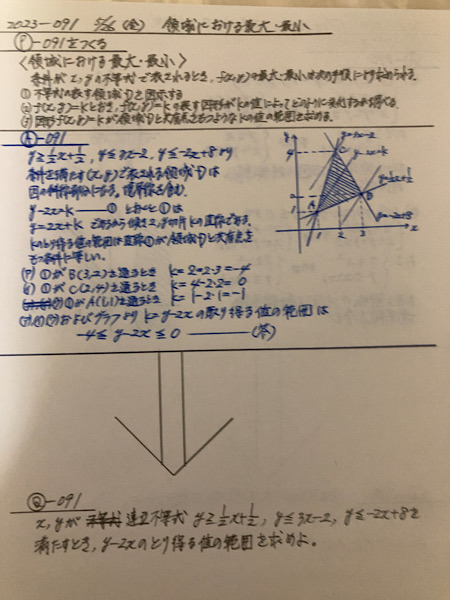 2023-091 5/26(金) 領域における最大・最小
Ⓟ-091をつくる
〈領域における最大・最小〉
条件が x, y の不等式で表されるとき, f(x,y)の最大・最小は次の手順により求められる.
① 不等式の表す領域Dを図示する
② f(x,y)=kとおき, f(x,y)=kの表す図形がkの値によってどのように変化するか調べる.
③ 図形f(x,y)=kが領域Dと共有点をもつようなkの値の範囲を求める.
Ⓐ-091
y≧1/2x+1/2, y≦3x-2, y≦-2x+8より
条件を満たす(x,y)で表される領域Dは
図の斜線部分になる, 境界線を含む.
y-2x=k ――① とおくと①は
y=2x+k であるから傾き2, y切片kの直線である.
kのとり得る値の範囲は直線①が領域Dと共有点を
もつ条件に等しい.
(ア) ①がB(3,2)を通るとき k=2-2・3=-4
(イ) ①がC(2,4)を通るとき k=4-2・2=0
(ウ) ①がA(1,1)を通るとき k=1-2・1=-1
(ア)(イ)(ウ)およびグラフより k=y-2xの取り得る値の範囲は
-4≦y-2x≦0 ――(答)
y
y=3x-2
4
C
y-2x=k
y=1/2x+1/2
2
B
1
A
y=-2x+8
1
2
3
x
Ⓠ-091
x, yが 連立不等式 y≧1/2x+1/2, y≦3x-2, y≦-2x+8を
満たすとき, y-2xのとり得る値の範囲を求めよ。